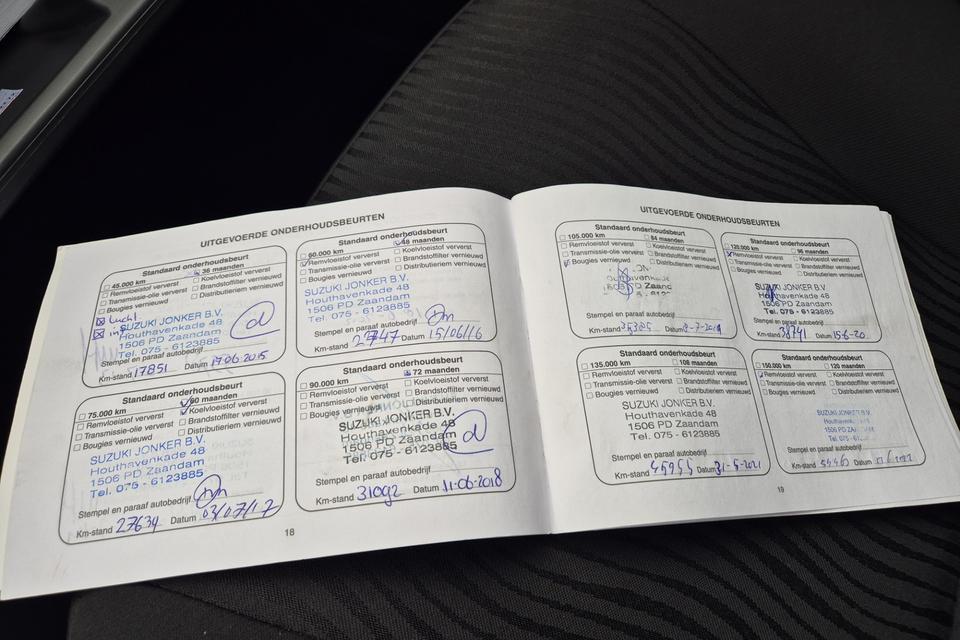 UITGEVOERDE ONDERHOUDSBEURTEN
Standaard onderhoudsbeurt
45.000 km 36 maanden
Remvloeistof ververst Koelvloeistof ververst
Transmissie-olie ververst Brandstoffilter vernieuwd
Bougies vernieuwd Distributieriem vernieuwd
lucht
SUZUKI JONKER B.V.
Houthavenkade 48
1506 PD Zaandam
Tel. 075 - 6123885
Stempel en paraaf autobedrijf
Km-stand 17851 Datum 17-06-2015
Standaard onderhoudsbeurt
60.000 km 48 maanden
Remvloeistof ververst Koelvloeistof ververst
Transmissie-olie ververst Brandstoffilter vernieuwd
Bougies vernieuwd Distributieriem vernieuwd
SUZUKI JONKER B.V.
Houthavenkade 48
1506 PD Zaandam
Tel. 075 - 6123885
Stempel en paraaf autobedrijf
Km-stand Datum 15/06/16
Standaard onderhoudsbeurt
75.000 km 60 maanden
Remvloeistof ververst Koelvloeistof ververst
Transmissie-olie ververst Brandstoffilter vernieuwd
Bougies vernieuwd Distributieriem vernieuwd
SUZUKI JONKER B.V.
Houthavenkade 48
1506 PD Zaandam
Tel. 075 - 6123885
Stempel en paraaf autobedrijf
Km-stand 27634 Datum 03/07/17
Standaard onderhoudsbeurt
90.000 km 72 maanden
Remvloeistof ververst Koelvloeistof ververst
Transmissie-olie ververst Brandstoffilter vernieuwd
Bougies vernieuwd Distributieriem vernieuwd
SUZUKI JONKER B.V.
Houthavenkade 48
1506 PD Zaandam
Tel. 075 - 6123885
Stempel en paraaf autobedrijf
Km-stand 31092 Datum 11-06-2018
18
UITGEVOERDE ONDERHOUDSBEURTEN
Standaard onderhoudsbeurt
105.000 km 84 maanden
Remvloeistof ververst Koelvloeistof ververst
Transmissie-olie ververst Brandstoffilter vernieuwd
Bougies vernieuwd Distributieriem vernieuwd
Stempel en paraaf autobedrijf
Km-stand Datum
Standaard onderhoudsbeurt
120.000 km 96 maanden
Remvloeistof ververst Koelvloeistof ververst
Transmissie-olie ververst Brandstoffilter vernieuwd
Bougies vernieuwd Distributieriem vernieuwd
SUZUKI JONKER B.V.
Houthavenkade 48
1506 PD Zaandam
Tel. 075 - 6123885
Stempel en paraaf autobedrijf
Km-stand Datum 15-6-20
Standaard onderhoudsbeurt
135.000 km 108 maanden
Remvloeistof ververst Koelvloeistof ververst
Transmissie-olie ververst Brandstoffilter vernieuwd
Bougies vernieuwd Distributieriem vernieuwd
SUZUKI JONKER B.V.
Houthavenkade 48
1506 PD Zaandam
Tel. 075 - 6123885
Stempel en paraaf autobedrijf
Km-stand Datum 31-5-2021
Standaard onderhoudsbeurt
150.000 km 120 maanden
Remvloeistof ververst Koelvloeistof ververst
Transmissie-olie ververst Brandstoffilter vernieuwd
Bougies vernieuwd Distributieriem vernieuwd
SUZUKI JONKER B.V.
Houthavenkade 48
Stempel en paraaf autobedrijf
Km-stand Datum
19